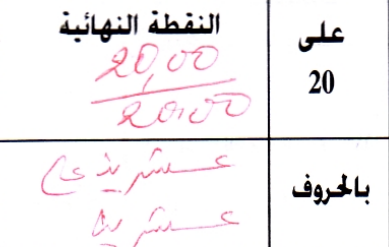 النقطة النهائية
على
20
20,00
20,00
بالحروف
عشرين
عشرين